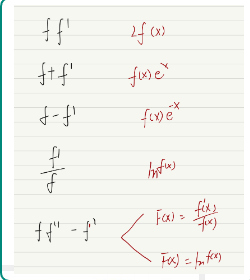 f f' 2f(x)
f + f' f(x)e^x
f - f' f(x)e^-x
f'/f ln f(x)
F(x) = f'(x)/f(x)
f f'' - f'
F(x) = ln f(x)